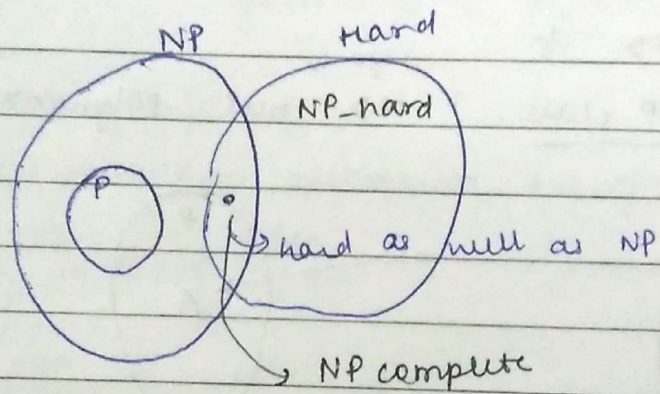 NP Hard
NP-hard
P
hard as well as NP
NP complete